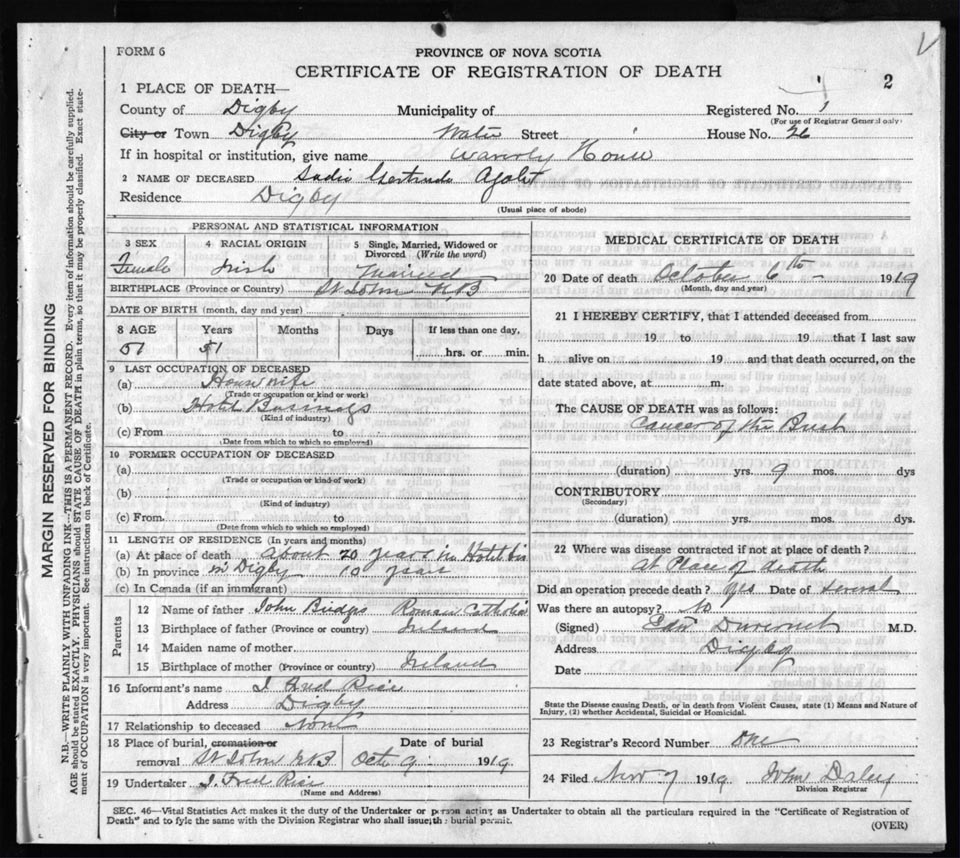 FORM 6
PROVINCE OF NOVA SCOTIA
CERTIFICATE OF REGISTRATION OF DEATH
2
1 PLACE OF DEATH—
County of Digby Municipality of Registered No. 1
(For use of Registrar General only)
City or Town Digby Water Street House No. 26
If in hospital or institution, give name Waverly House
2 NAME OF DECEASED Sadie Gertrude
Residence Digby
(Usual place of abode)
PERSONAL AND STATISTICAL INFORMATION
3 SEX 4 RACIAL ORIGIN 5 Single, Married, Widowed or Divorced (Write the word)
Female Irish Married
BIRTHPLACE (Province or Country) St John N B
DATE OF BIRTH (month, day and year)
8 AGE Years Months Days If less than one day,
51 51 hrs. or min.
9 LAST OCCUPATION OF DECEASED
(a) Housewife
(Trade or occupation or kind or work)
(b) Hotel
(Kind of industry)
(c) From to
(Date from which to which so employed)
10 FORMER OCCUPATION OF DECEASED
(a)
(Trade or occupation or kind of work)
(b)
(Kind of industry)
(c) From to
(Date from which to which so employed)
11 LENGTH OF RESIDENCE (In years and months)
(a) At place of death about 20 years in Hotel
(b) In province in Digby 10 years
(c) In Canada (if an immigrant)
Parents
12 Name of father John Roman Catholic
13 Birthplace of father (Province or country) Ireland
14 Maiden name of mother
15 Birthplace of mother (Province or country) Ireland
16 Informant's name J. Fred Rice
Address Digby
17 Relationship to deceased None
18 Place of burial, cremation or Date of burial
removal St John N B Oct 9 1919
19 Undertaker J. Fred Rice
(Name and Address)
MEDICAL CERTIFICATE OF DEATH
20 Date of death October 6th 1919
(Month, day and year)
21 I HEREBY CERTIFY, that I attended deceased from
19 to 19 that I last saw
h alive on 19 and that death occurred, on the
date stated above, at m.
The CAUSE OF DEATH was as follows:
Cancer of the
(duration) yrs. 9 mos. dys
CONTRIBUTORY
(Secondary)
(duration) yrs. mos. dys.
22 Where was disease contracted if not at place of death?
at Place of death
Did an operation precede death? yes Date of Several
Was there an autopsy? No
(Signed) Edw M.D.
Address Digby
Date
State the Disease causing Death, or in death from Violent Causes, state (1) Means and Nature of Injury, (2) whether Accidental, Suicidal or Homicidal.
23 Registrar's Record Number one
24 Filed Nov 7 1919 John Daley
Division Registrar
SEC. 46—Vital Statistics Act makes it the duty of the Undertaker or person acting as Undertaker to obtain all the particulars required in the "Certificate of Registration of
Death" and to fyle the same with the Division Registrar who shall issue the burial permit.
(OVER)
MARGIN RESERVED FOR BINDING
N.B.—WRITE PLAINLY WITH UNFADING INK—THIS IS A PERMANENT RECORD. Every item of information should be carefully supplied.
AGE should be stated EXACTLY. PHYSICIANS should STATE CAUSE OF DEATH in plain terms, so that it may be properly classified. Exact state-
ment of OCCUPATION is very important. See instructions on back of Certificate.